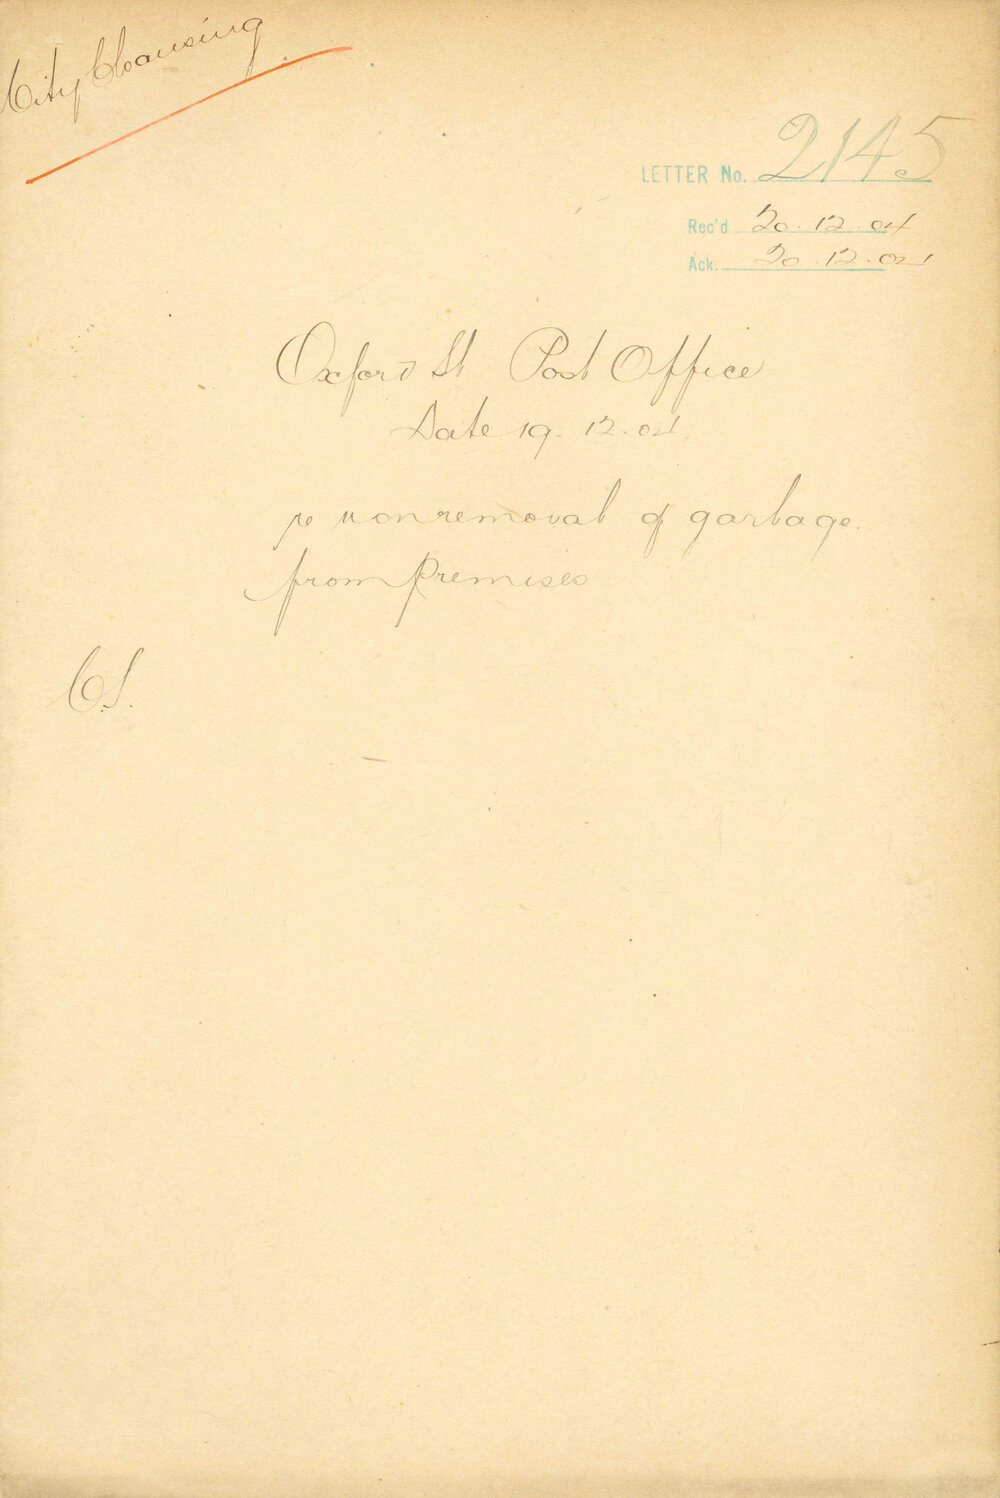 City Cleansing
LETTER No. 2145
Rec'd 20.12.04
Ack. 20.12.04
Oxford St Post Office
Date 19.12.04
re nonremoval of garbage.
from Premises
C.S.